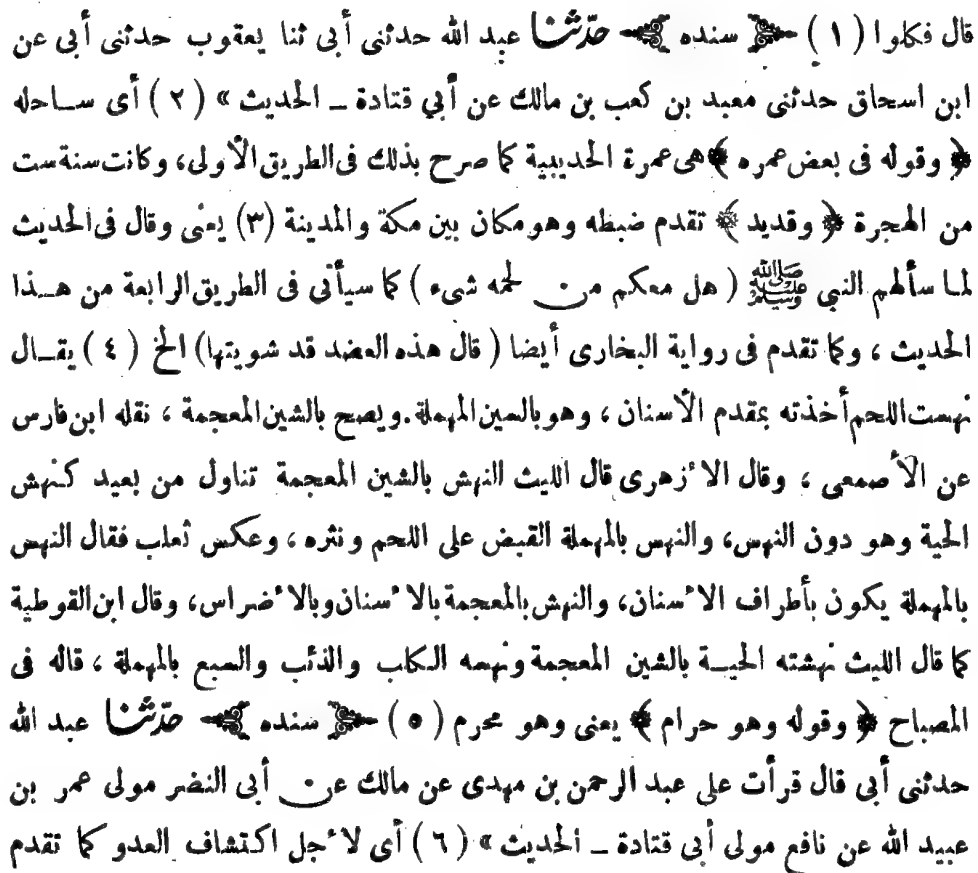 قال فكلوا (١) ﴿ سنده ﴾ حدّثنا عبد الله حدثنى أبى ثنا يعقوب حدثنى أبى عن
ابن اسحاق حدثنى معبد بن كعب بن مالك عن أبي قتادة ــ الحديث » (٢) أى ساحله
﴿ وقوله فى بعض عمره ﴾ هى عمرة الحديبية كما صرح بذلك فى الطريق الأولى، وكانت سنة ست
من الهجرة ﴿ وقديد ﴾ تقدم ضبطه وهو مكان بين مكة والمدينة (٣) يعنى وقال فى الحديث
لما سألهم النبي ﷺ ( هل معكم من لحمه شىء ) كما سيأتى فى الطريق الرابعة من هذا
الحديث ، وكما تقدم فى رواية البخارى أيضا ( قال هذه العضد قد شويتها) الخ (٤) يقال
نهست اللحم أخذته بمقدم الأسنان ، وهو بالسين المهملة . ويصح بالشين المعجمة ، نقله ابن فارس
عن الأصمعى ، وقال الأزهرى قال الليث النهش بالشين المعجمة تناول من بعيد كنهش
الحية وهو دون النهس، والنهس بالمهملة القبض على اللحم ونثره ، وعكس ثعلب فقال النهس
بالمهملة يكون بأطراف الأسنان، والنهش بالمعجمة بالأسنان وبالأضراس، وقال ابن القوطية
كما قال الليث نهشته الحية بالشين المعجمة ونهسه الكلب والذئب والسبع بالمهملة ، قاله فى
المصباح ﴿ وقوله وهو حرام ﴾ يعنى وهو محرم (٥) ﴿ سنده ﴾ حدّثنا عبد الله
حدثنى أبى قال قرأت على عبد الرحمن بن مهدى عن مالك عن أبى النضر مولى عمر بن
عبيد الله عن نافع مولى أبى قتادة ــ الحديث » (٦) أى لأجل اكتشاف العدو كما تقدم